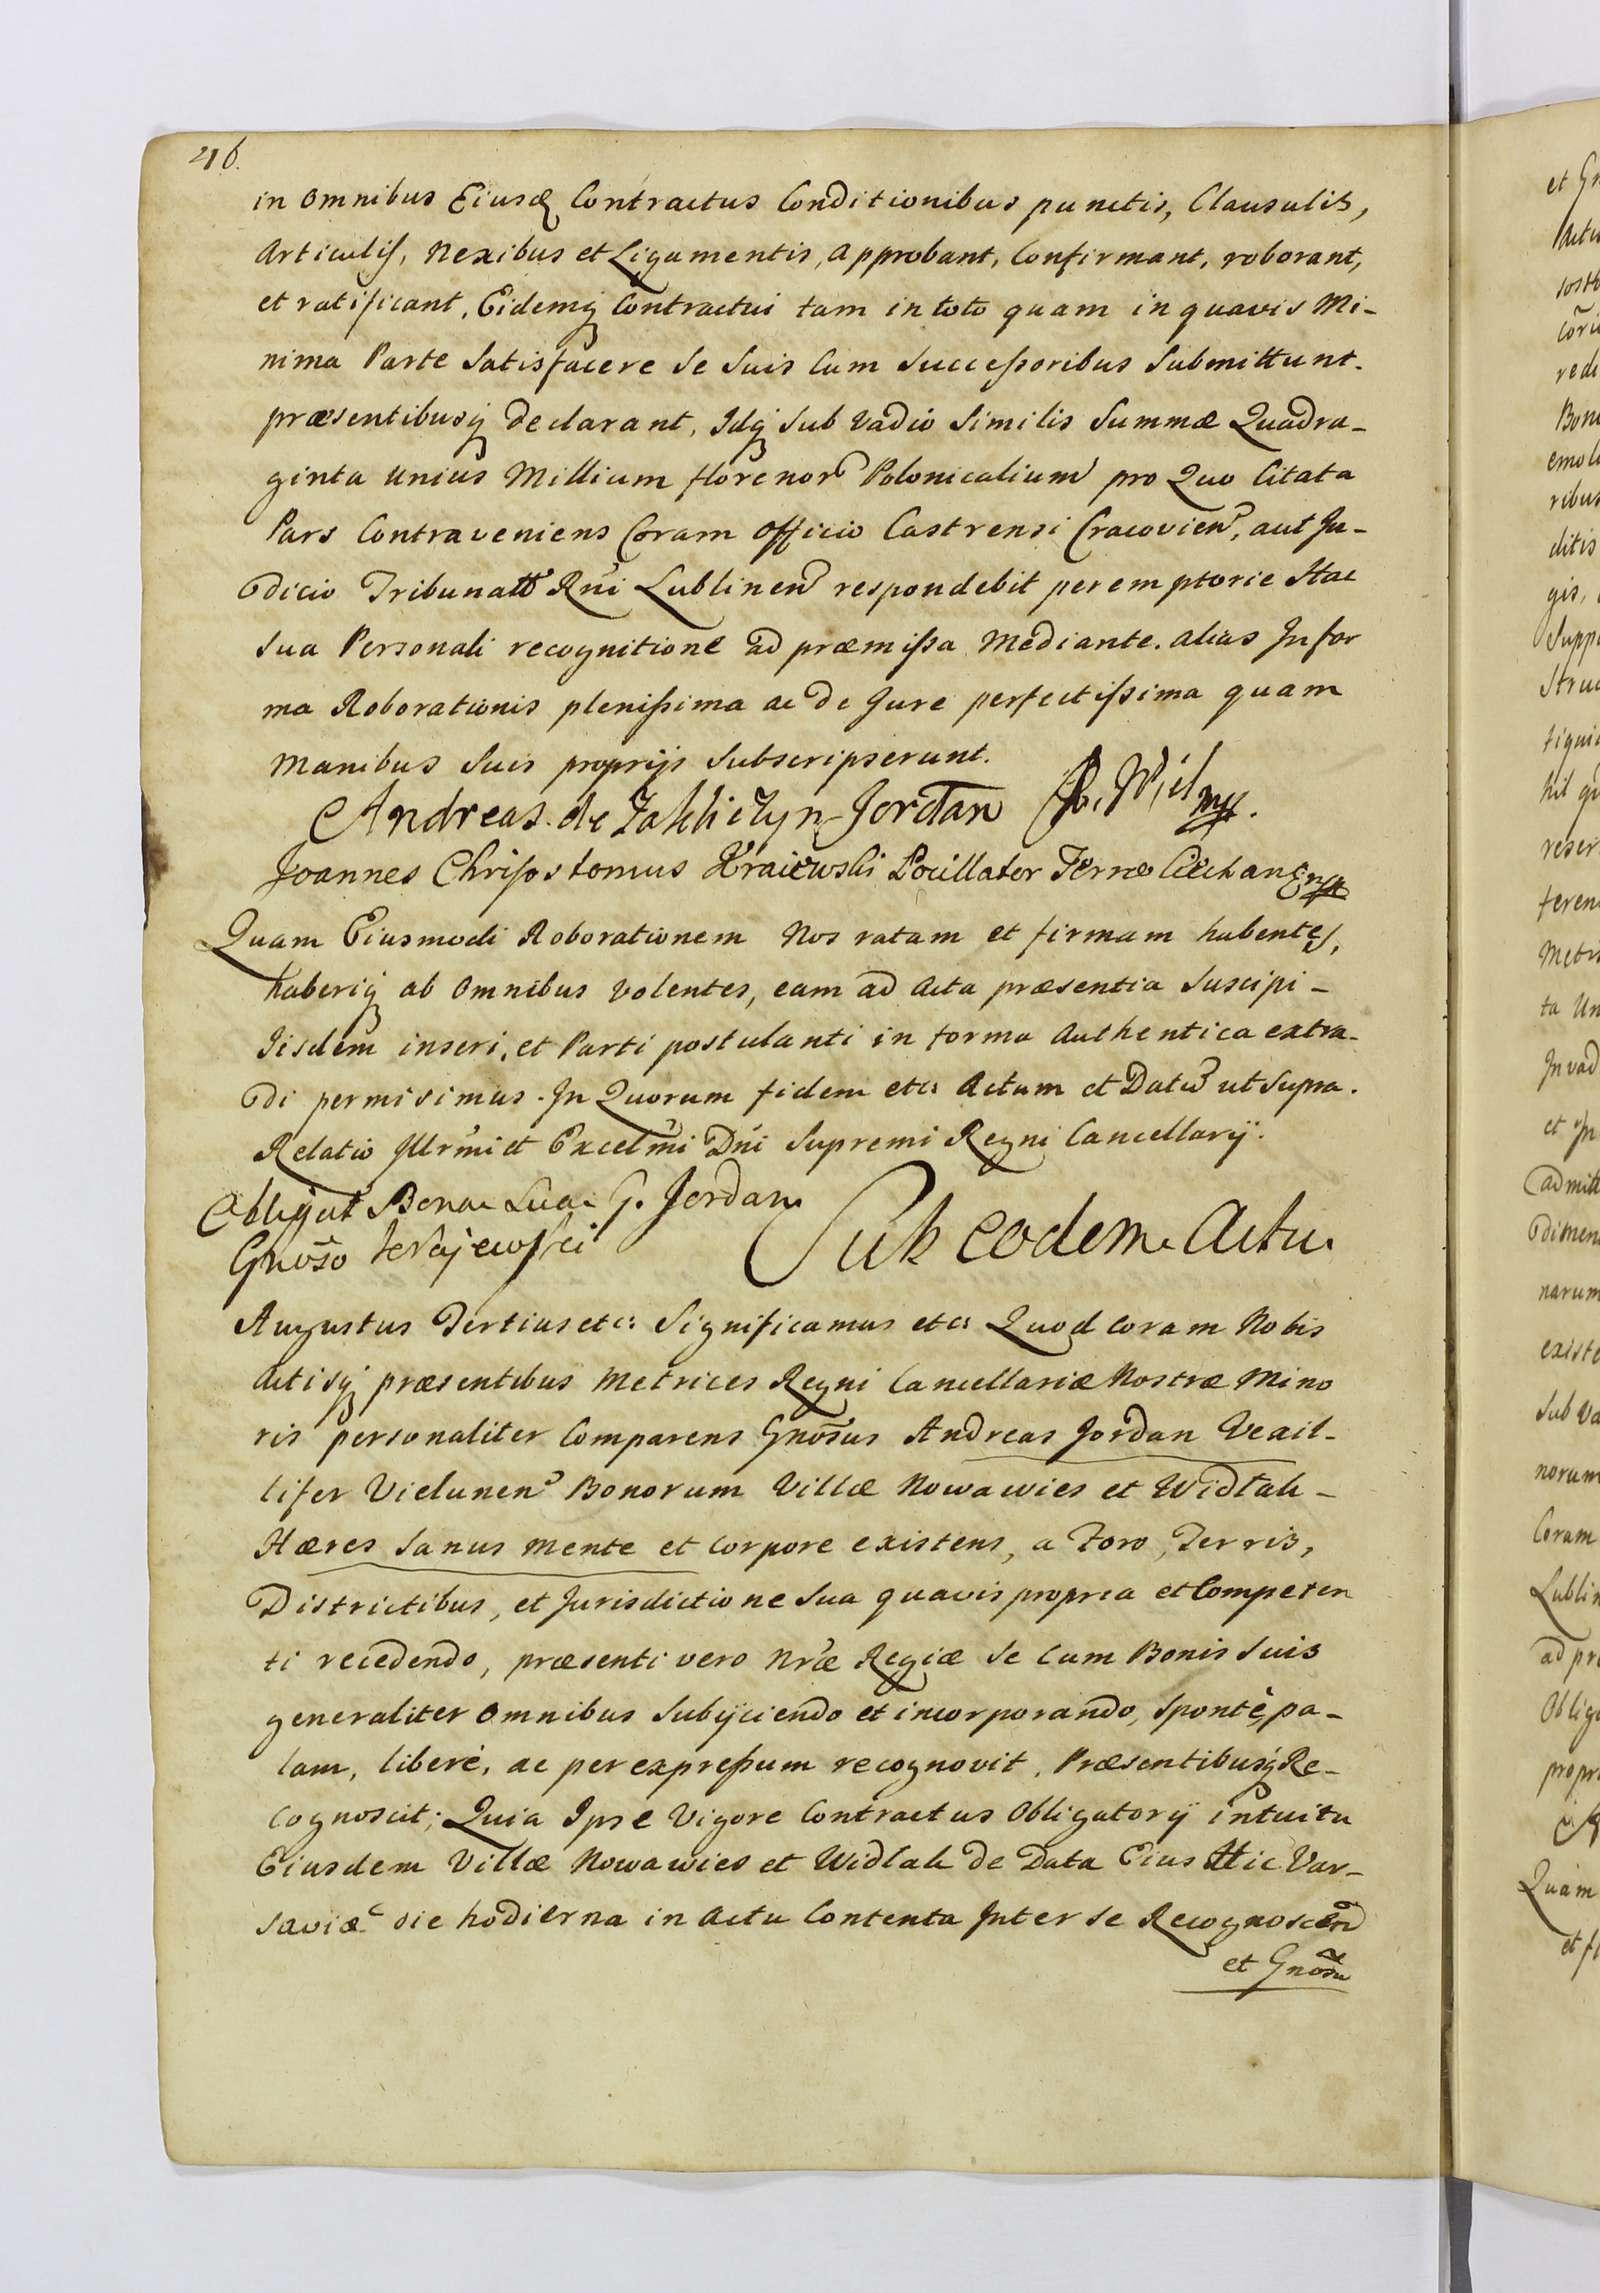 216.
in omnibus Eiusđ Contractus Conditionibus punctis, Clausulis,
Articulis, Nexibus et Ligamentis, approbant, Confirmant, roborant,
et ratificant, Eidemq Contractui tam in toto quam in quavis Mi-
nima Parte Satisfacere se suis Cum Successoribus Submittunt.
præsentibusq declarant, Idq sub vadio similis Summæ Quadra-
ginta unius Millium florenor Polonicalium pro Quo Citata
Pars Contraveniens Coram Officio Castrensi Cracovien, aut Ju-
dicio Tribunalt Rni Lublinen respondebit peremptorie Hac
sua Personali recognitione ad præmissa Mediante. alias In for
ma Roborationis plenissima ac de Jure perfectissima quam
Manibus suis proprijs subscripserunt.
Andreas de Zakliczyn Jordan Ch. Wiel mp.
Joannes Chrisostomus Kraiewski Pocillator Terræ Ciechan mp
Quam Eiusmodi Roborationem Nos ratam et firmam habentes,
haberiq ab omnibus volentes, eam ad Acta præsentia Suscipi-
Iisdem inseri, et Parti postulanti in forma Authentica extra-
di permisimus. In Quorum fidem etc: Actum et Datu ut supra.
Relatio Illrmi et Excelmi Dni Supremi Regni Cancellarij.
Obligat Bona Sua G. Jordan
Gnoso Krajewski
Sub eodem Actu
Augustus Tertius etc: Significamus etc: Quod coram Nobis
Actisq præsentibus Metrices Regni Cancellariæ Nostræ Mino
ris personaliter Comparens Gnosus Andreas Jordan Vexil-
lifer Vielunen Bonorum Villæ Nowawies et Widlak-
Hæres sanus mente et corpore existens, a Foro, Terris,
Districtibus, et Jurisdictione sua quavis propria et Competen
ti recedendo, præsenti vero Nræ Regiæ se cum Bonis suis
generaliter omnibus subijciendo et incorporando, spontè, pa-
lam, liberè, ac per expressum recognovit, Præsentibusq Re-
cognoscit; Quia Ipse Vigore Contractus Obligatorij intuitu
Eiusdem Villæ Nowawies et Widlak de Data Eius Hic Var-
saviæ die hodierna in Actu Contenta Inter se Recognoscen
et Gnosu